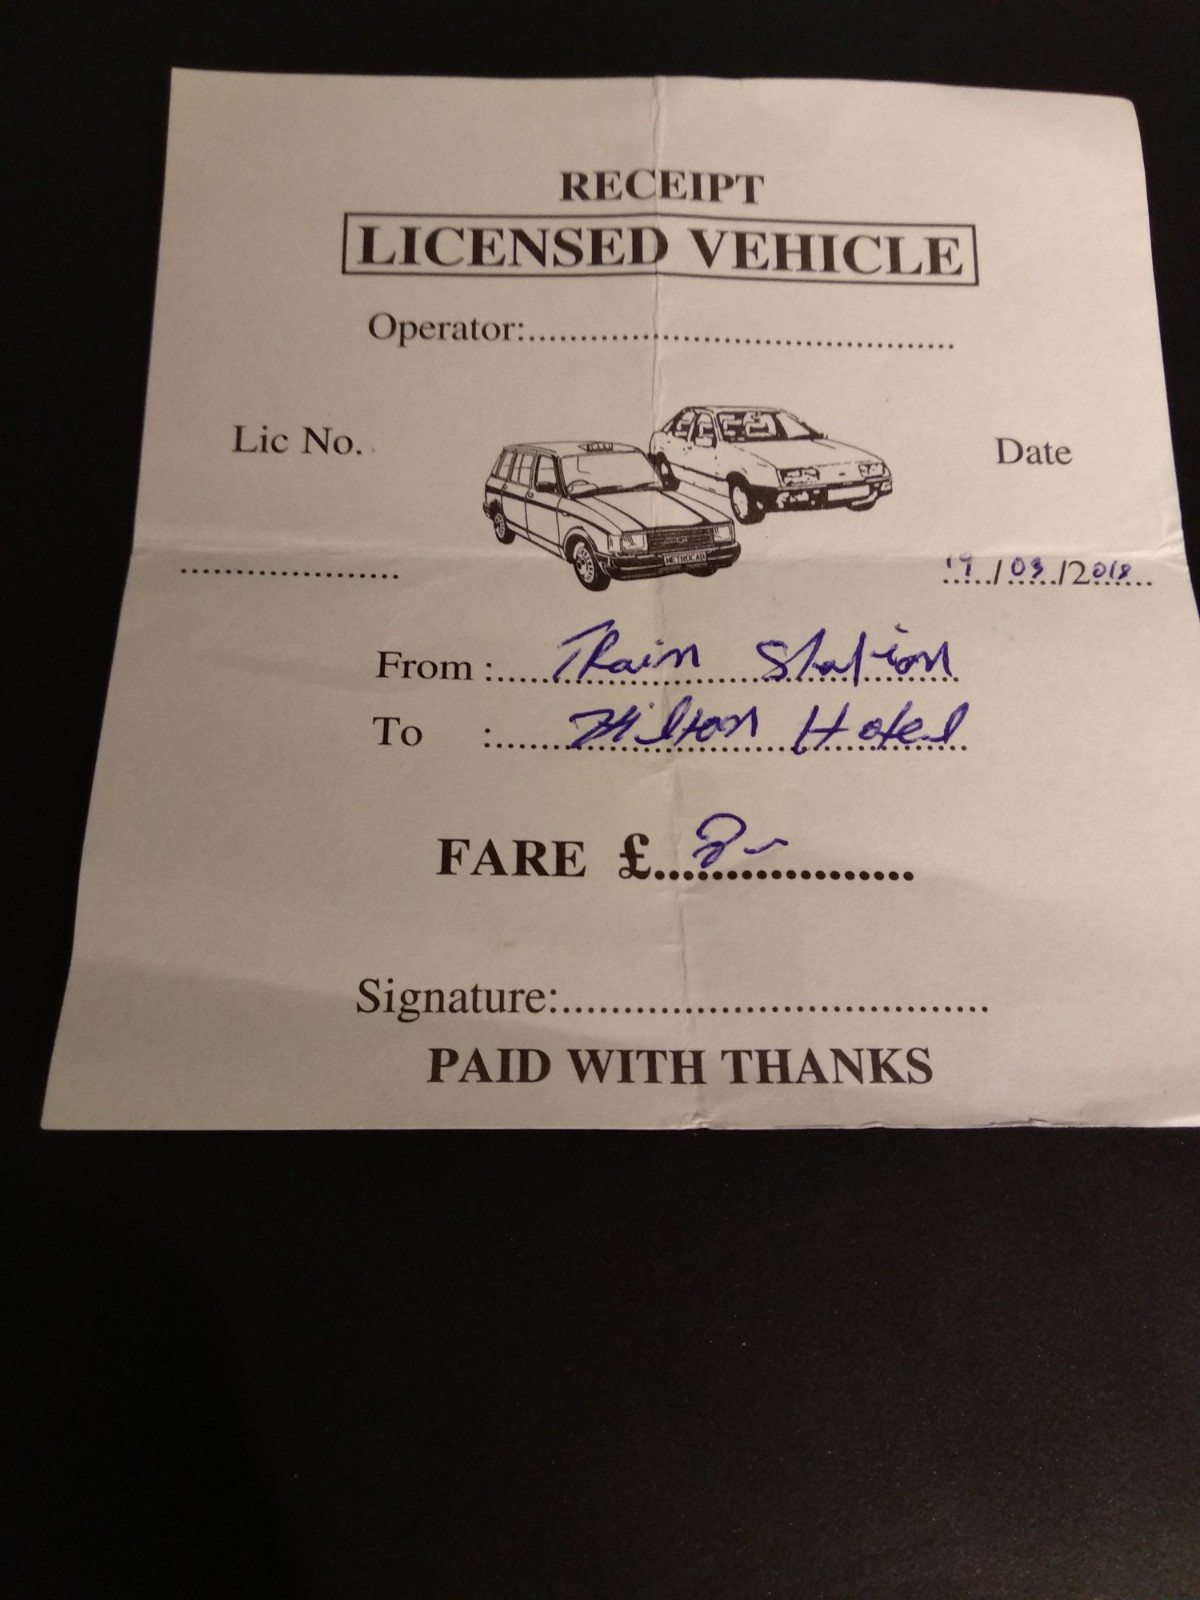 RECEIPT
LICENSED VEHICLE
Operator:
Lic No.
Date
METROCAB
19/03/2018
From : Train Station
To : Hilton Hotel
FARE £
Signature:
PAID WITH THANKS